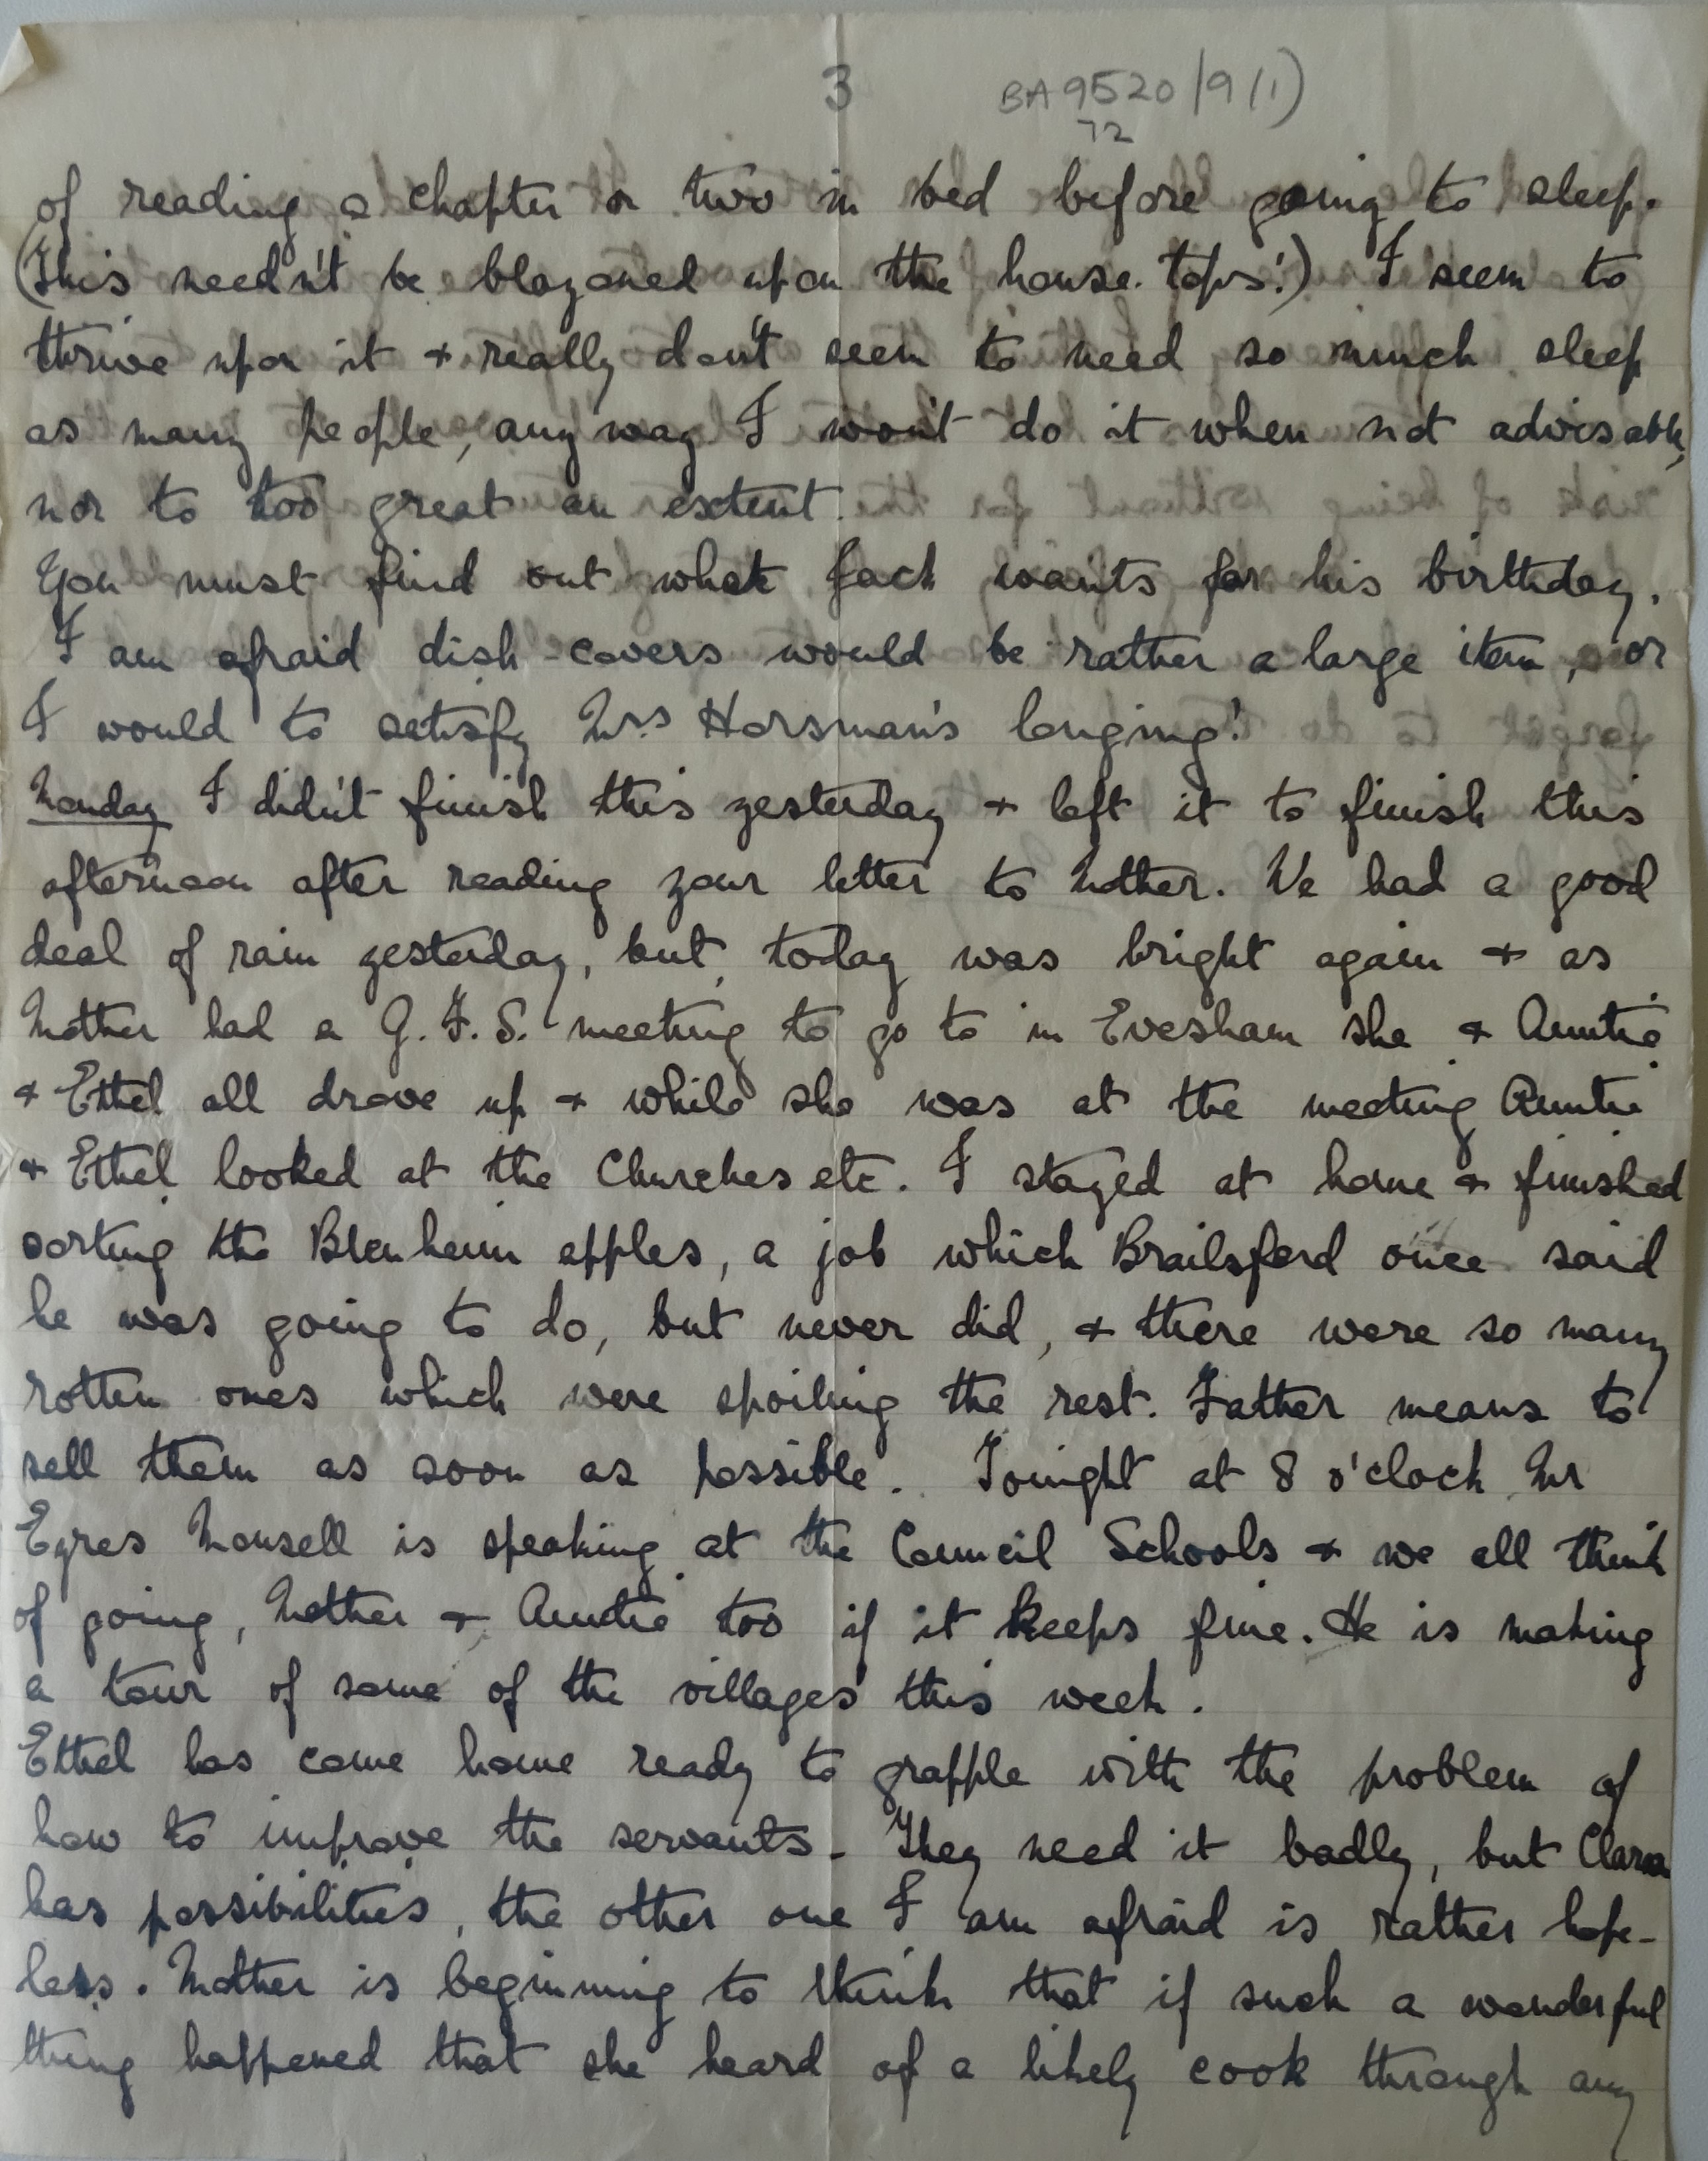 3
BA9520/9(1)
72
of reading a chapter or two in bed before going to sleep.
(This needn't be blazoned upon the house-tops!) I seem to
thrive upon it + really don't seem to need so much sleep
as many people, anyway I won't do it when not advisable,
nor to too great an extent.
You must find out what Jack wants for his birthday.
I am afraid dish-covers would be rather a large item, or
I would to satisfy Mrs Horsman's longing!
Monday I didn't finish this yesterday + left it to finish this
afternoon after reading your letter to Mother. We had a good
deal of rain yesterday, but today was bright again + as
Mother had a G.F.S. meeting to go to in Evesham she + Auntie
+ Ethel all drove up + while she was at the meeting Auntie
+ Ethel looked at the Churches etc. I stayed at home + finished
sorting the Blenheim apples, a job which Brailsford once said
he was going to do, but never did, + there were so many
rotten ones which were spoiling the rest. Father means to
sell them as soon as possible. Tonight at 8 o'clock Mr
Eyres Monsell is speaking at the Council Schools + we all think
of going, Mother + Auntie too if it keeps fine. He is making
a tour of some of the villages this week.
Ethel has come home ready to grapple with the problem of
how to improve the servants - They need it badly, but Clara
has possibilities, the other one I am afraid is rather hope-
less. Mother is beginning to think that if such a wonderful
thing happened that she heard of a likely cook through any